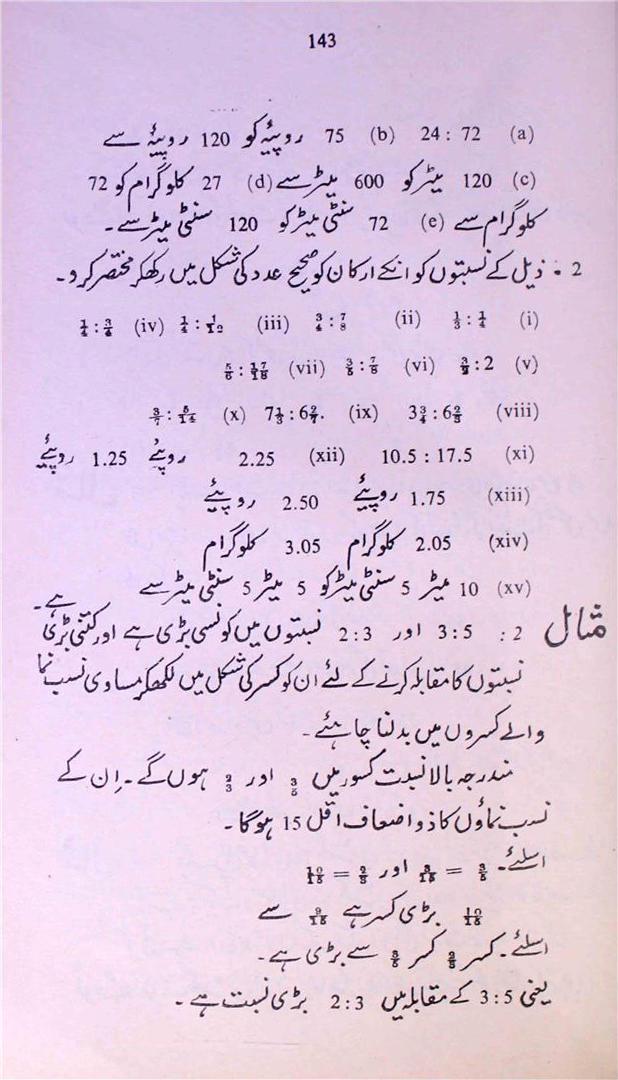 143
(a) 24 : 72 (b) 75 روپیٔہ کو 120 روپیٔہ سے
(c) 120 میٹر کو 600 میٹر سے (d) 27 کلوگرام کو 72
کلوگرام سے (e) 72 سنٹی میٹر کو 120 سنٹی میٹر سے۔
2 ۔ ذیل کے نسبتوں کو انکے ارکان کو صحیح عدد کی شکل میں رکھکر مختصر کرو۔
(i) 1/3 : 1/4 (ii) 3/4 : 7/8 (iii) 1/4 : 1/12 (iv) 1/4 : 3/4
(v) 3/2 : 2 (vi) 3/5 : 7/8 (vii) 5/6 : 17/18
(viii) 3 3/4 : 6 2/3 (ix) 7 1/3 : 6 2/7. (x) 3/7 : 5/14
(xi) 10.5 : 17.5 (xii) 2.25 روپیٔے 1.25 روپیٔے
(xiii) 1.75 روپیٔے 2.50 روپیٔے
(xiv) 2.05 کلوگرام 3.05 کلوگرام
(xv) 10 میٹر 5 سنٹی میٹر کو 5 میٹر 5 سنٹی میٹر سے
مثال 2 : 3:5 اور 2:3 نسبتوں میں کونسی بڑی ہے اور کتنی بڑی ہے۔
نسبتوں کا مقابلہ کرنے کے لئے ان کو کسر کی شکل میں لکھکر مساوی نسب نما
والے کسروں میں بدلنا چاہئے۔
مندرجہ بالا نسبت کسور میں 3/5 اور 2/3 ہوں گے۔ اِن کے
نسب نماؤں کا ذواضعاف اقل 15 ہوگا۔
اسلئے۔ 3/5 = 9/15 اور 2/3 = 10/15
10/15 بڑی کسر ہے 9/15 سے
اسلئے۔ کسر 2/3 کسر 3/5 سے بڑی ہے۔
یعنی 3:5 کے مقابلہ میں 2:3 بڑی نسبت ہے۔